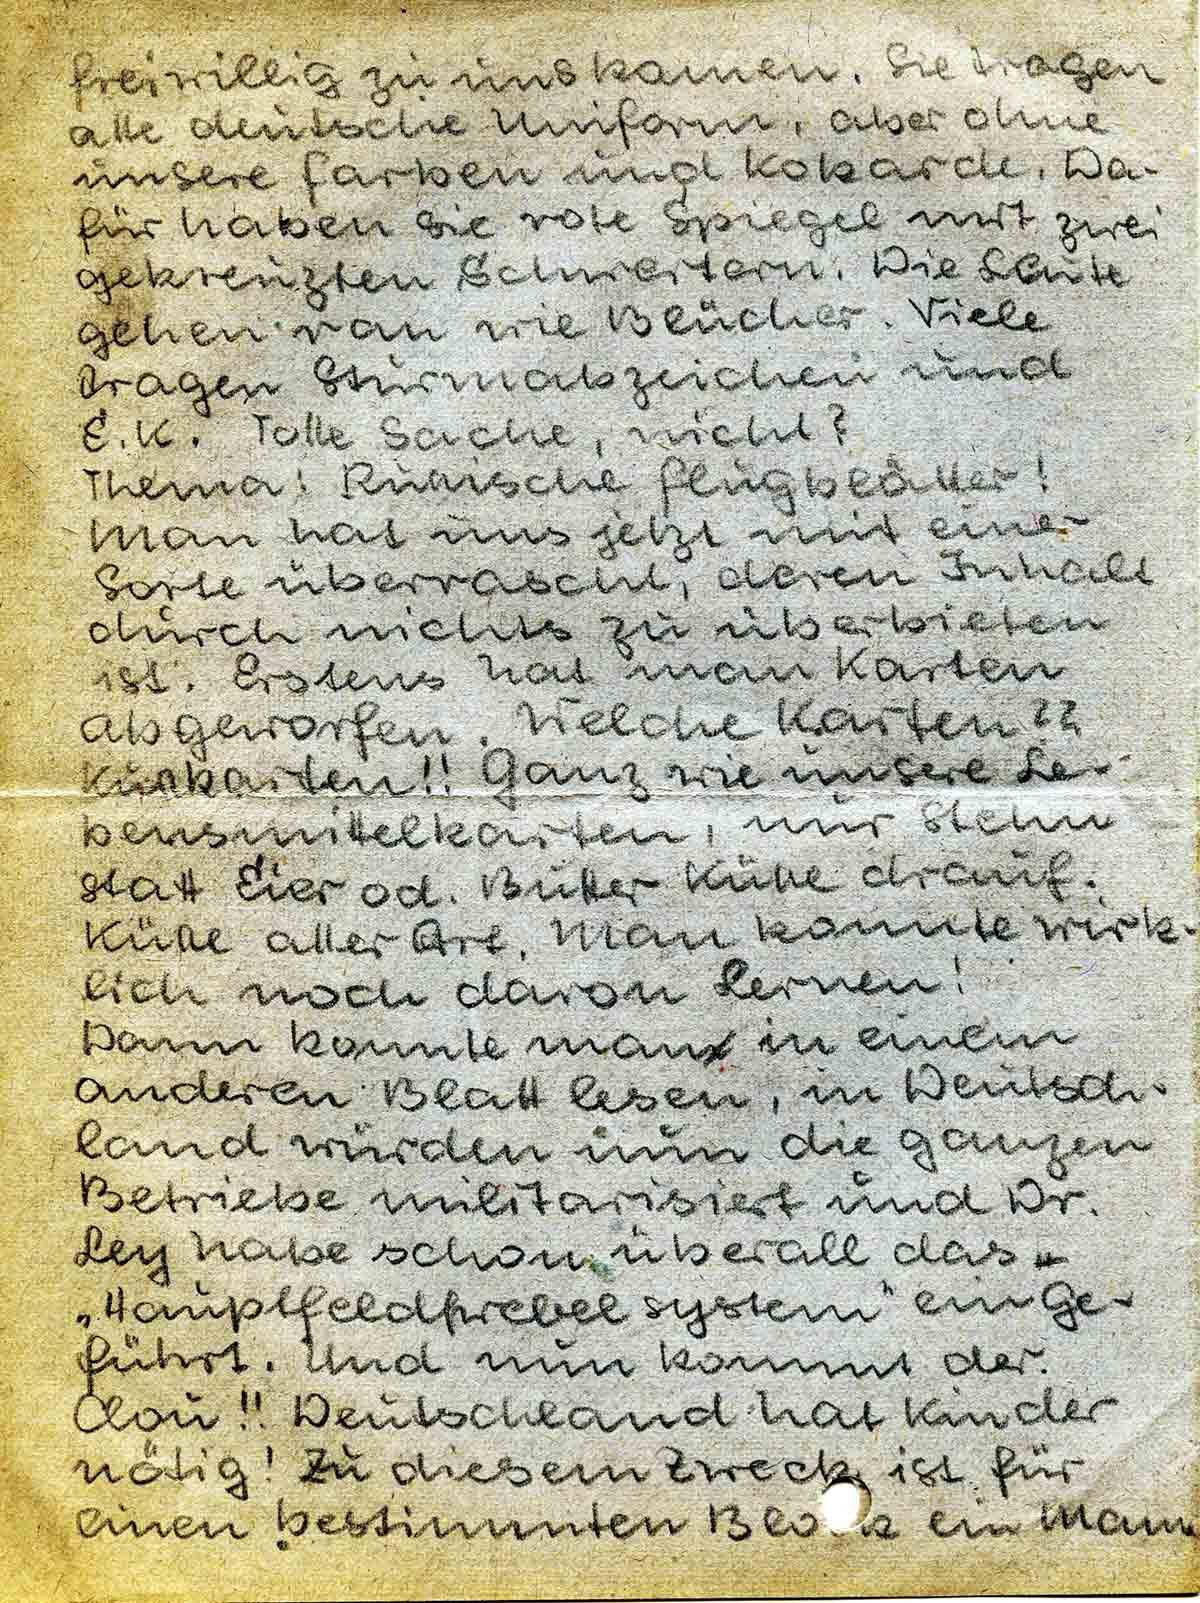 freiwillig zu uns kamen. Sie tragen
alle deutsche Uniform, aber ohne
unsere Farben und Kokarde. Da-
für haben sie rote Spiegel mit zwei
gekreuzten Schwertern. Die Leute
gehen ran wie Blücher. Viele
tragen Sturmabzeichen und
E.K. Tolle Sache, nicht?
Thema: Russische Flugblätter!
Man hat uns jetzt mit einer
Sorte überrascht, deren Inhalt
durch nichts zu überbieten
ist. Erstens hat man Karten
abgeworfen. Welche Karten??
Kußkarten!! Ganz wie unsere Le-
bensmittelkarten, nur stehn
statt Eier od. Butter Küsse drauf.
Küsse aller Art. Man konnte wirk-
lich noch daran Lernen!
Dann konnte man in einem
anderen Blatt lesen, in Deutsch-
land würden nun die ganzen
Betriebe militarisiert und Dr.
Ley habe schon überall das
„Hauptfeldwebelsystem" einge-
führt. Und nun kommt der
Clou!! Deutschland hat Kinder
nötig! Zu diesem Zweck ist für
einen bestimmten Block ein Mann